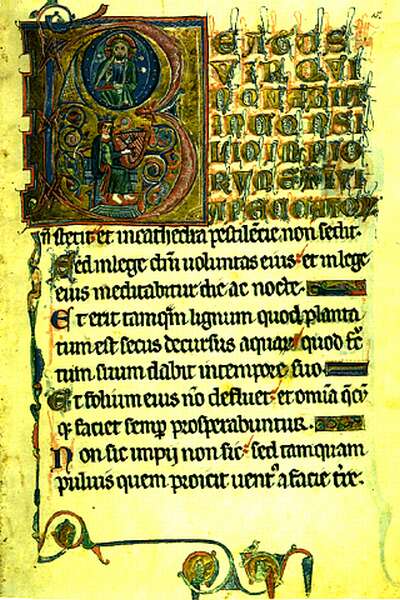 BEATUS
VIR QVI
NON ABIIT
IN CONSI
LIO IMPIO
RVM ET I VI
A PECCATOR
n stetit et incathedra pestilẽcie non sedit.
Sed inlege dñi voluntas eius et in lege
eius meditabitur die ac nocte.
Et erit tamq̃m lignum quod planta
tum est secus decursus aquar̃ quod fc̃
tum suum dabit intempore suo.
Et folium eius nõ defluet et om̃ia q̃cũ
q; faciet semp̱ prosperabuntur.
Non sic impij non sic sed tamquam
puluis quem proicit uentꝰ a facie tr̃e.